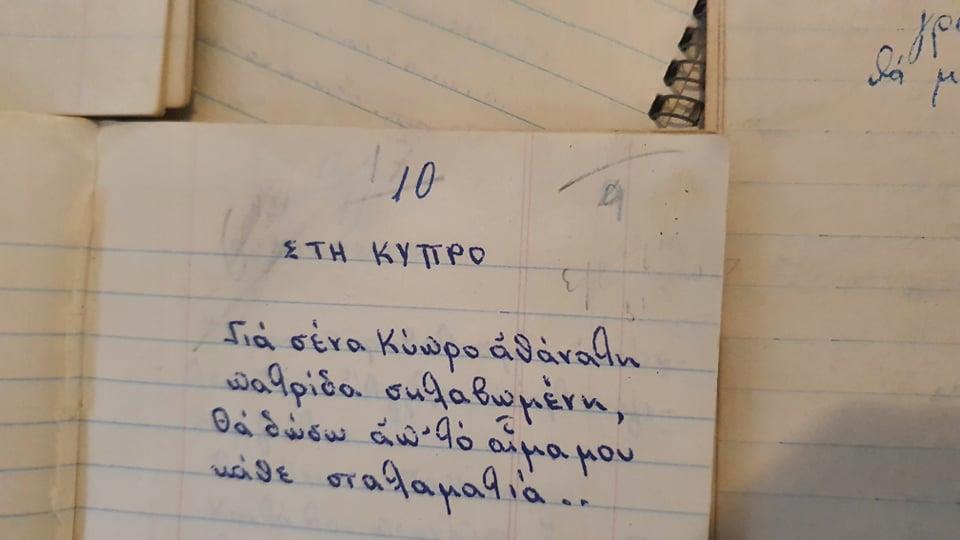 γρ
θά μ
10
9
ΣΤΗ ΚΥΠΡΟ
Γιά σένα Κύπρο ἀθάνατη
πατρίδα σκλαβωμένη,
θά δώσω ἀπ' τό αἷμα μου
κάθε σταλαματιά..